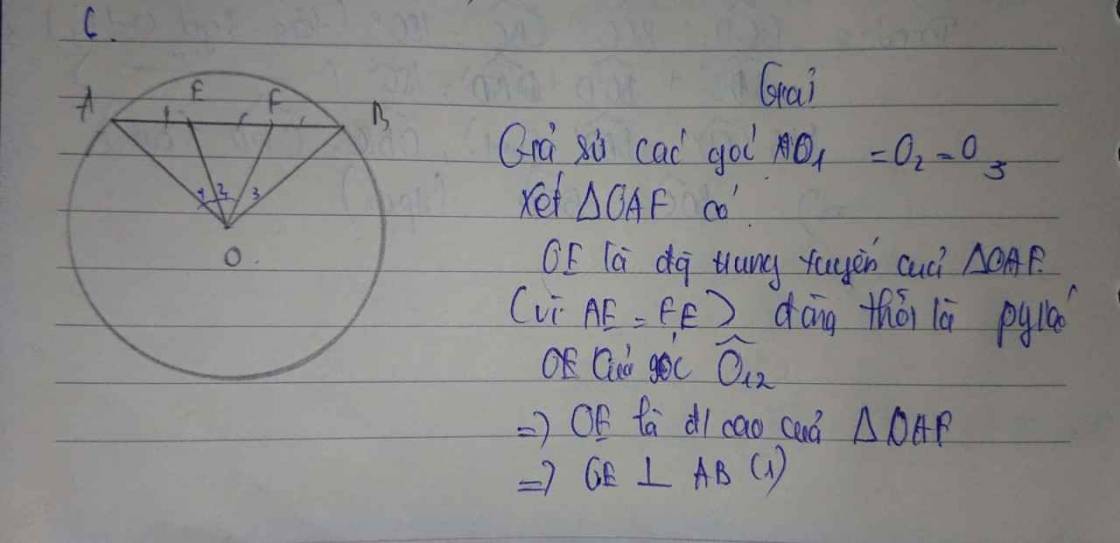 C.
A E F B
1 2 3
O.
Giải
Giả sử các góc AO1 = O2 = O3
Xét ΔOAF có
OE là đg trung tuyến cuả ΔOAF.
(vì AE = FE) đồng thời là
OE của góc O12
=) OE là đ/ cao cuả ΔOAF
=) OE ⊥ AB (1)